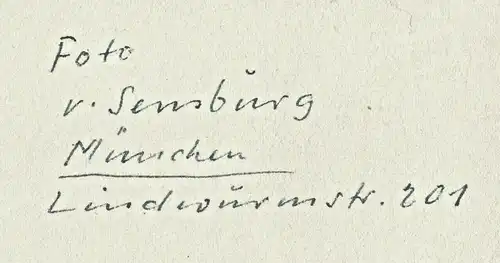 Foto
v. Sensburg
München
Lindwurmstr. 201